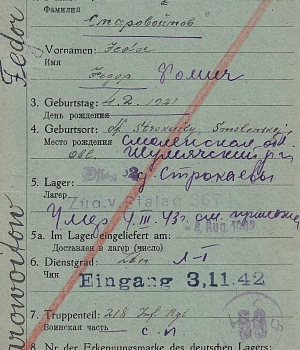 Фамилия
Старовойтов
2. Vornamen: Fedor
Имя
Федор Фомич
3. Geburtstag: 4.2. 1921
День рождения
4. Geburtsort: Smolensk
Место рождения Смоленская обл
обл. Шумячский р-н
д. Строкаевы
5. Lager:
Лагерь
Zug. v. Stalag
Умер 4.III.43г. см.
4. Aug. 1942
5a. Im Lager eingeliefert am:
Доставлен в лагерь (число)
6. Dienstgrad: л-т
Чин
Eingang 3.11.42
7. Truppenteil: 218 Inf. Rgt
Воинская часть с.п.
8. Nr der Erkennungsmarke des deutschen Lagers:
Fedor